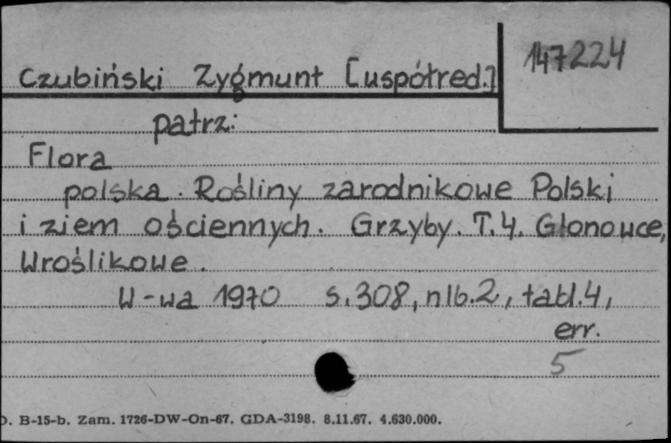 147224
Czubiński Zygmunt [współred.]
patrz:
Flora
polska. Rośliny zarodnikowe Polski
i ziem ościennych. Grzyby. T.4. Glonowce,
Wroślikowe.
W-wa 1970 s.308, nlb.2, tabl.4,
err.
5
D. B-15-b. Zam. 1726-DW-On-67. GDA-3198. 8.11.67. 4.630.000.